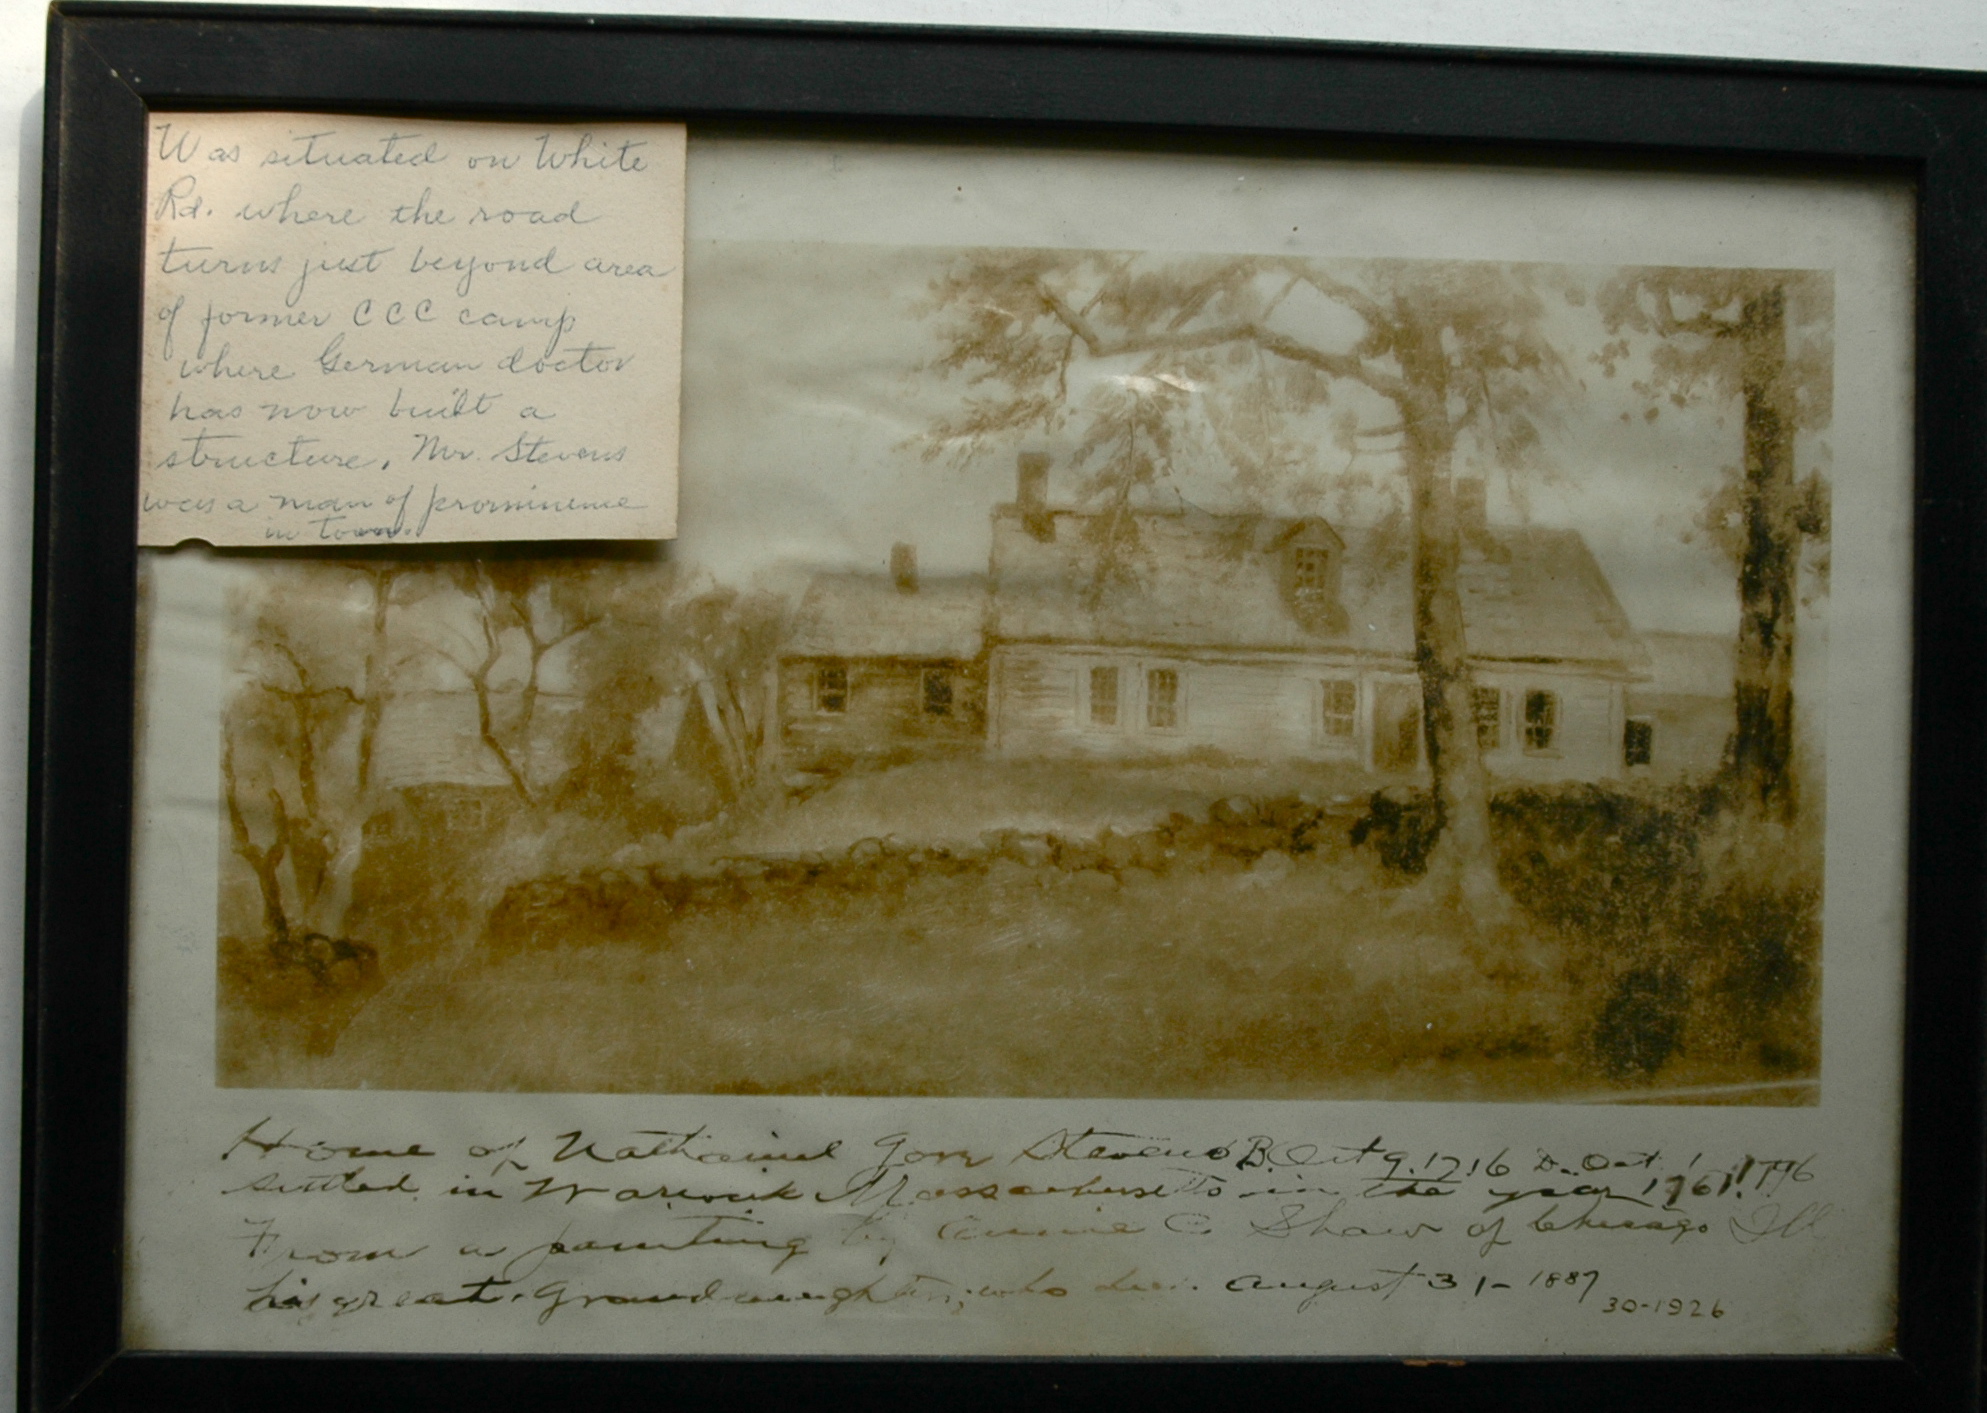 Was situated on White
Rd. where the road
turns just beyond area
of former CCC camp
where German doctor
has now built a
structure. Mr. Stevens
was a man of prominence
in town.
Home of Nathaniel Stevens B. Oct 9. 1716 D. Oct 1 1776
settled in Warwick Massachusetts in the year 1761
From a painting by Annie C. Shaw of Chicago Ill
his great. Granddaughter, who died August 31- 1887
30-1926